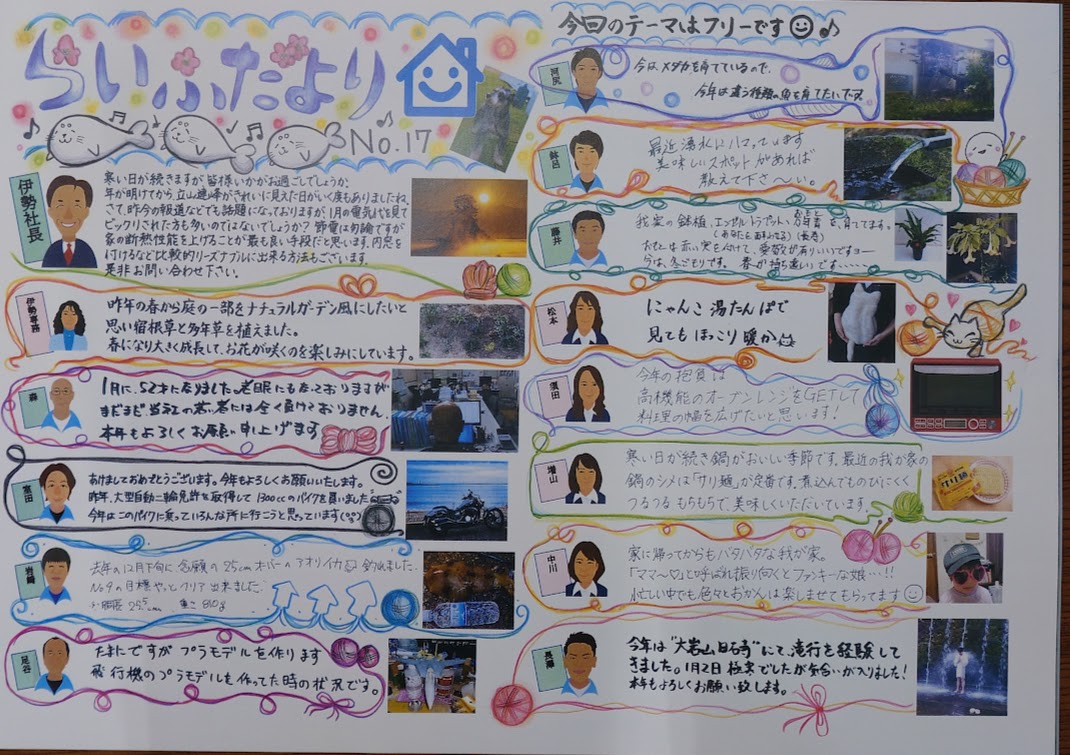 らいふだより
No.17
伊勢社長
寒い日が続きますが皆様いかがお過ごしでしょうか。
年が明けてから立山連峰がきれいに見えた日がいく度もありましたね。
さて、昨今の報道などでも話題になっておりますが、1月の電気代を見て
ビックリされた方も多いのではないでしょうか？節電は勿論ですが
家の断熱性能を上げることが最も良い手段だと思います。内窓を
付けるなど比較的リーズナブルに出来る方法もございます。
是非お問い合わせ下さい。
伊勢専務
昨年の春から庭の一部をナチュラルガーデン風にしたいと
思い宿根草と多年草を植えました。
春になり大きく成長して、お花が咲くのを楽しみにしています。
森
1月に、52才になりました。老眼にもなっておりますが
まだまだ当社の若者には全く負けておりません。
本年もよろしくお願い申し上げます
室田
あけましておめでとうございます。今年もよろしくお願いいたします。
昨年、大型自動二輪免許を取得して1300ccのバイクを買いました
今年はこのバイクに乗っていろんな所に行こうと思っています(^o^)
岩崎
去年の12月下旬に念願の25cmオーバーのアオリイカ釣れました。
No9の目標やっとクリア出来ました。
胴長 25.5cm 重さ 810g
足谷
たまにですがプラモデルを作ります
飛行機のプラモデルを作ってた時の状況です。
今回のテーマはフリーです
河尻
今はメダカを育てているので、
今年は違う種類の魚を育てたいです
鉢呂
最近湧水にハマっています
美味しいスポットがあれば
教えて下さ〜い。
藤井
我家の鉢植、エンゼルトランペット、万年青を育ててます。
おもとは赤い実を付けて、愛敬が有りいいですヨー
今は、冬ごもりです。春が待ち遠しいです・・・・
松本
にゃんこ湯たんぽで
見てもほっこり暖か
須田
今年の抱負は
高機能のオーブンレンジをGETして
料理の幅を広げたいと思います！
増山
寒い日が続き鍋がおいしい季節です。最近の我が家の
鍋のシメは「サリ麺」が定番です。煮込んでものびにくく
つるつるもちもちで、美味しくいただいています。
中川
家に帰ってからもバタバタな我が家。
「ママ〜♡」と呼ばれ振り向くとファンキーな娘・・・!!
忙しい中でも色々とおかんは楽しませてもらってます
長澤
今年は"大岩山日石寺"にて、滝行を経験して
きました。1月2日 極寒でしたが気合いが入りました！
本年もよろしくお願い致します。